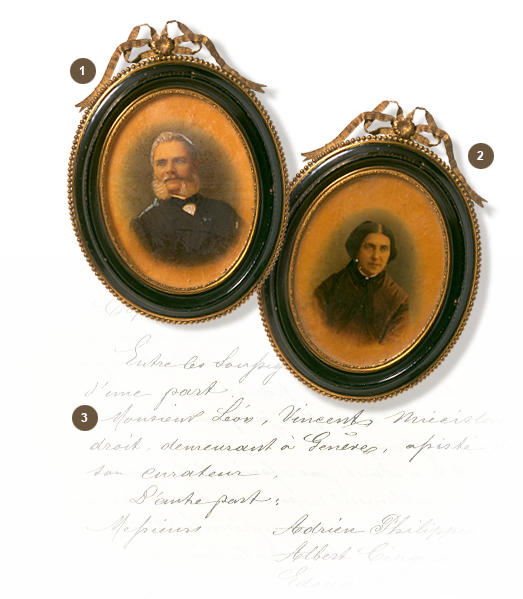 1
2
Entre les soussig
d'une part
3
Monsieur Léon, Vincent, Miécisla
droit, demeurant à Genève, assisté
son curateur,
D'autre part:
Messieurs Adrien Philippe
Albert Cing
Edoua